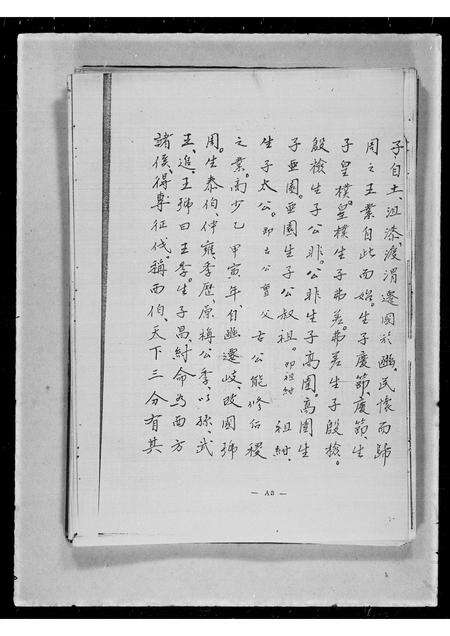 子自土沮漆渡渭遷國於豳、民懷而歸
周之王業自此而始。生子慶節、慶節、生
子皇樸。皇樸生子弗差。弗差生子殷檢。
殷檢生子公非。公非生子高圉。高圉生
子亜圉。亜圉生子公叔祖。即祖紺 祖紺、
生子太公。即古公亶父 古公能修后稷
之業。商少乙甲寅年、自豳遷岐、改國號
周。生泰伯、仲雍、季歷、原稱公季以孫、武
王、追、王號曰王季。生子昌、紂命為西方
諸侯、得專征伐、稱西伯、天下三分有其